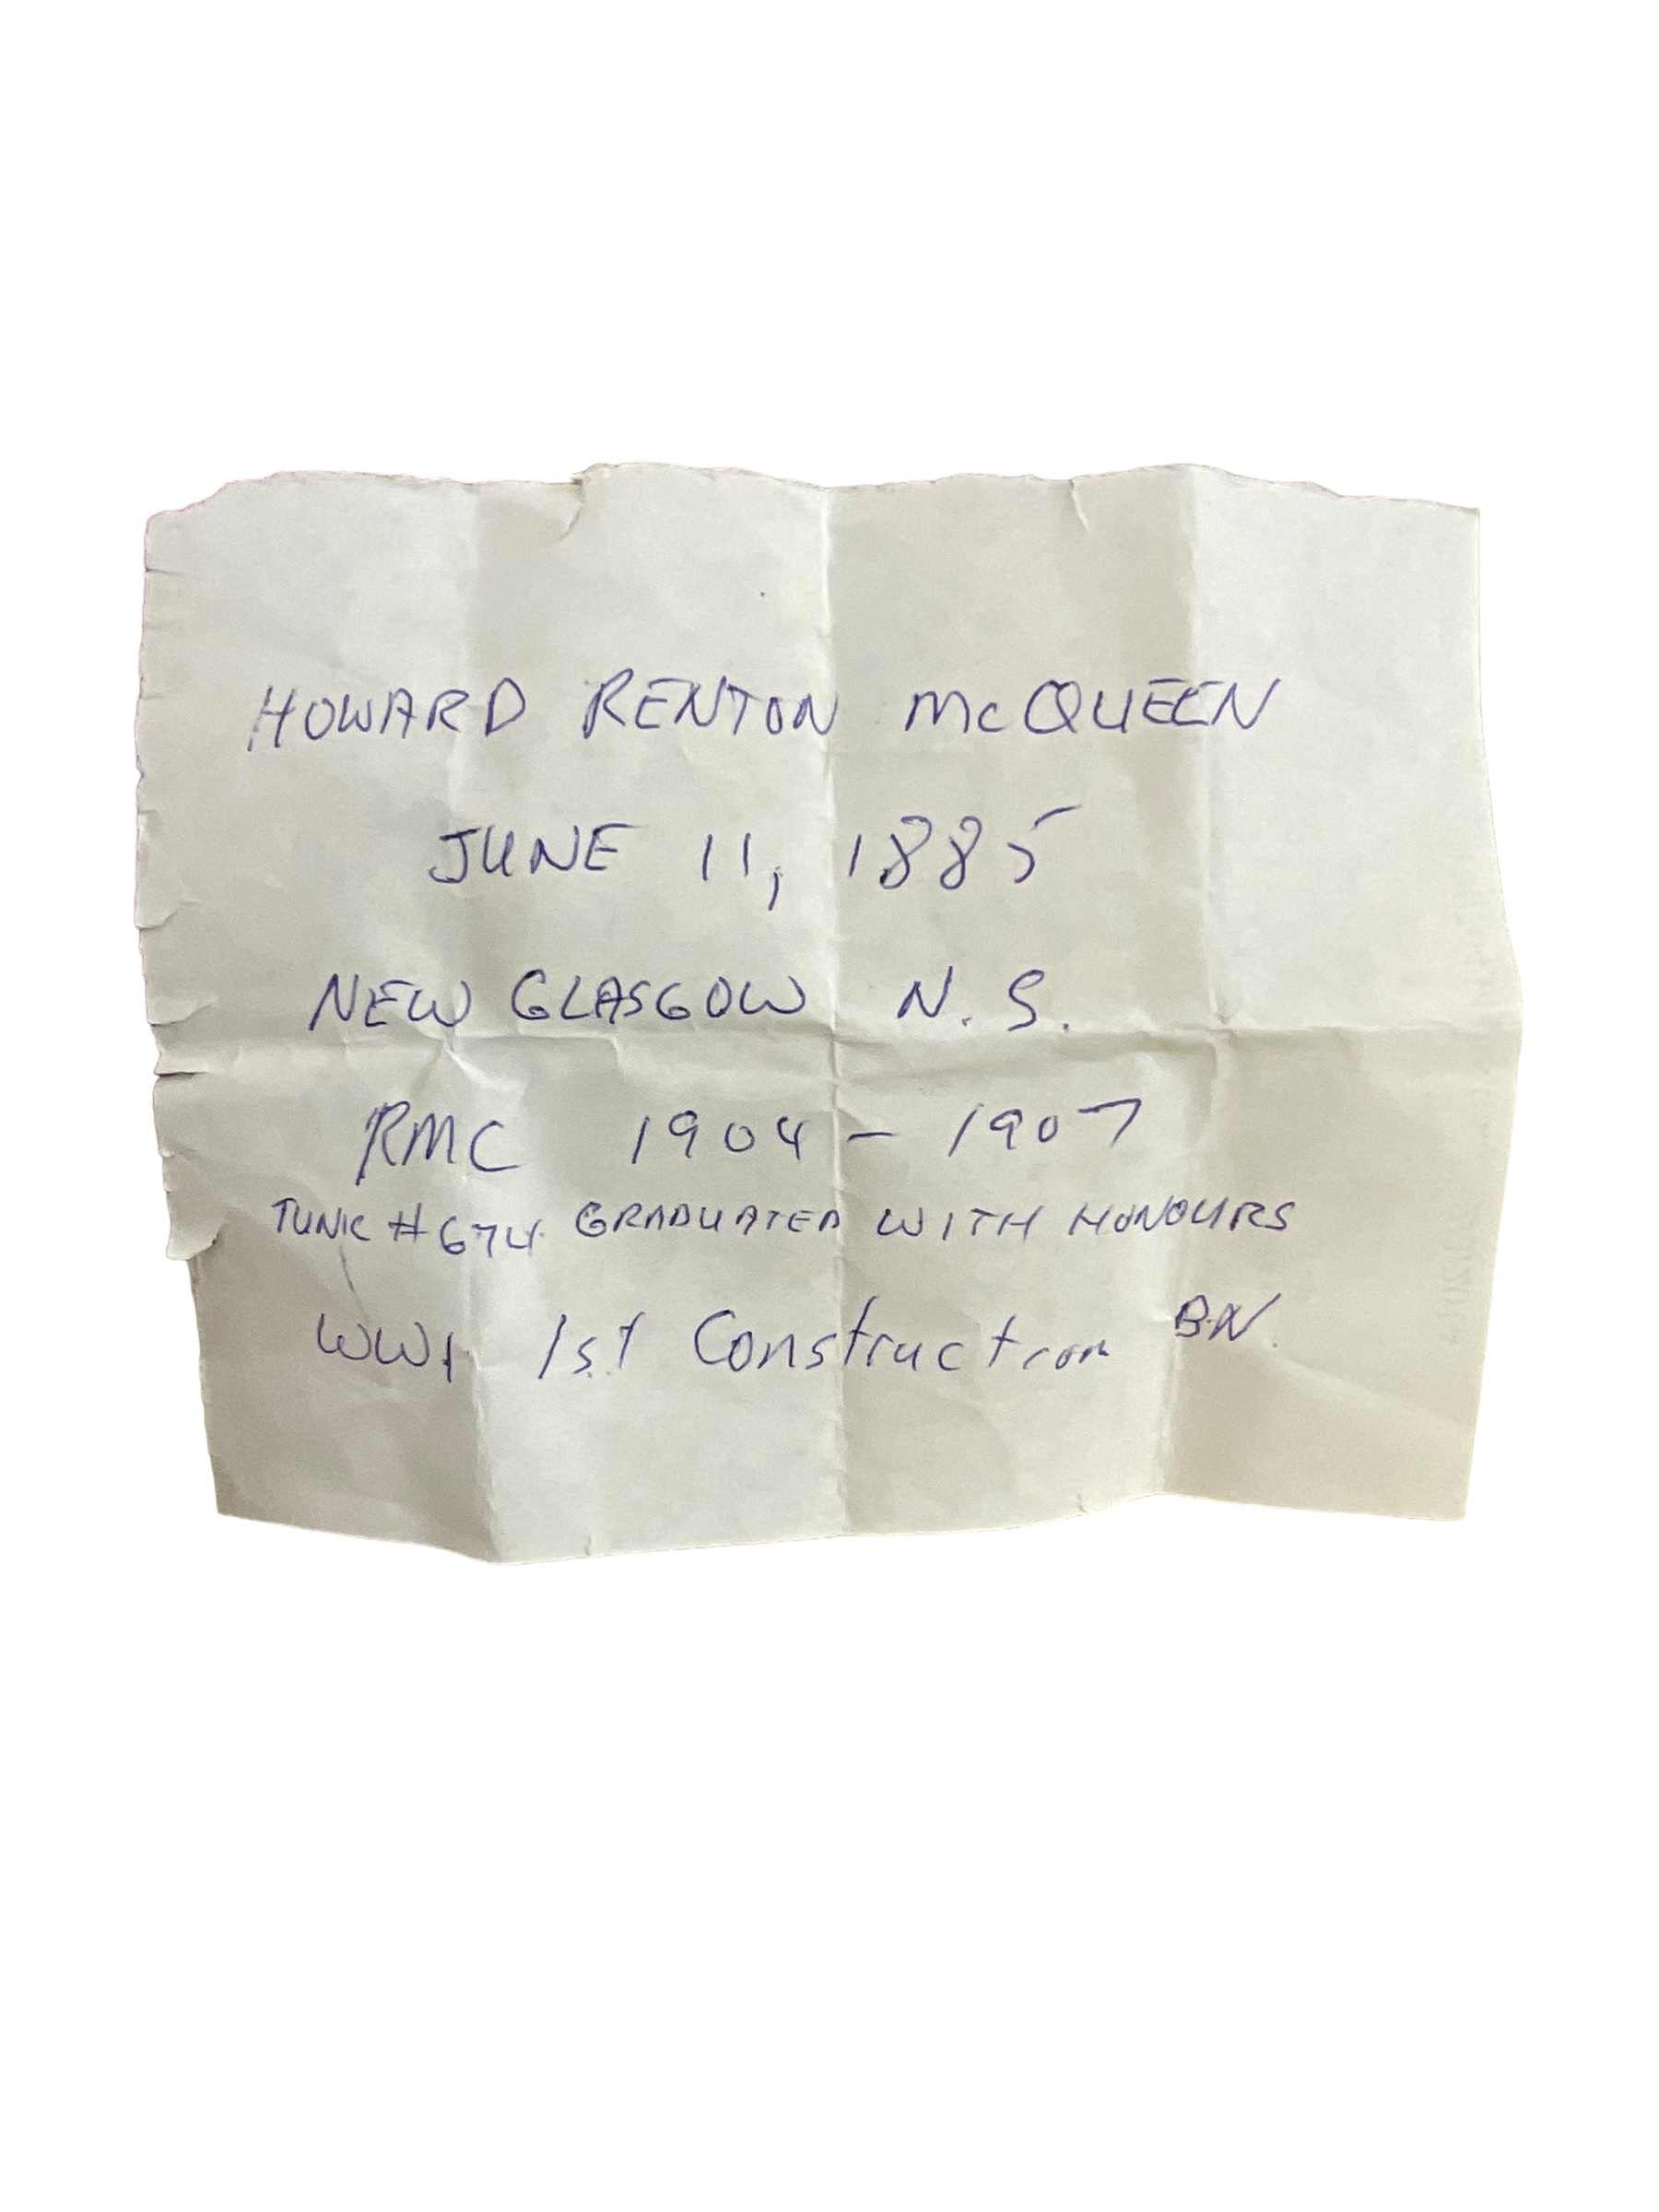 HOWARD RENTON McQUEEN
JUNE 11, 1885
NEW GLASGOW N.S.
RMC 1904 - 1907
TUNIC #674 GRADUATED WITH HONOURS
WW1 1st Construction BN.